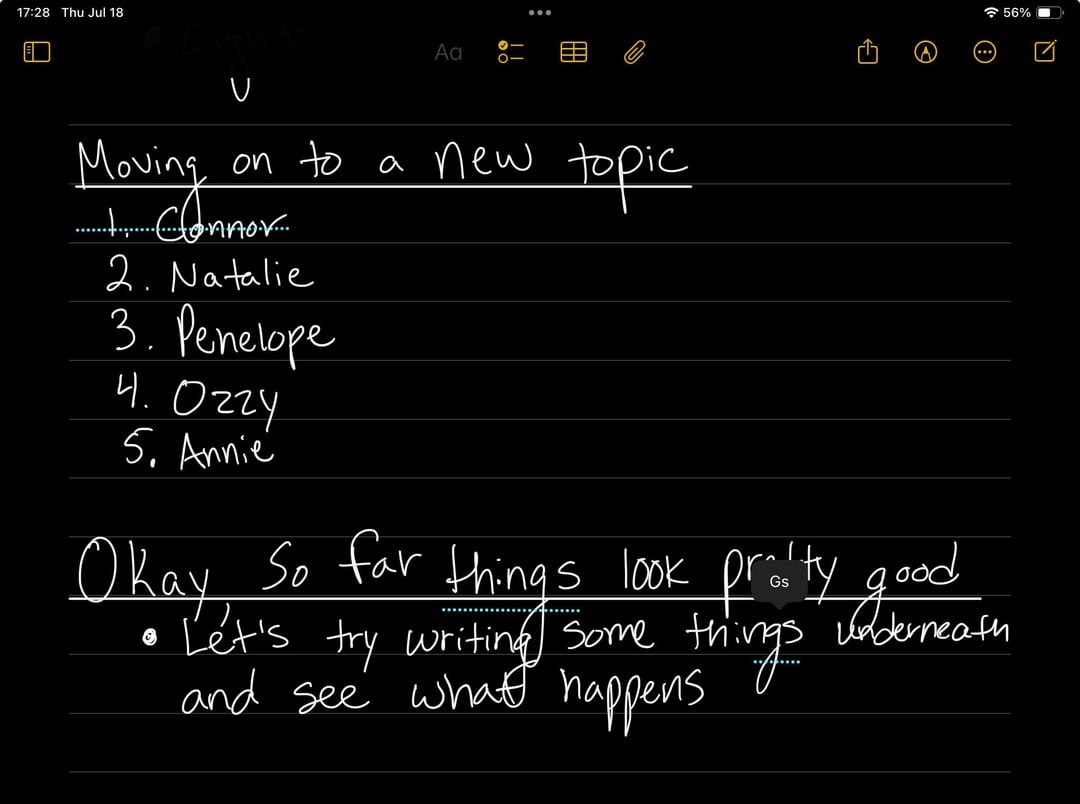 17:28 Thu Jul 18
56%
Eight
Aa
Moving on to a new topic
1. Connor
2. Natalie
3. Penelope
4. Ozzy
5. Annie
Okay, So far things look pretty good
Gs
• Let's try writing some things underneath
and see what happens